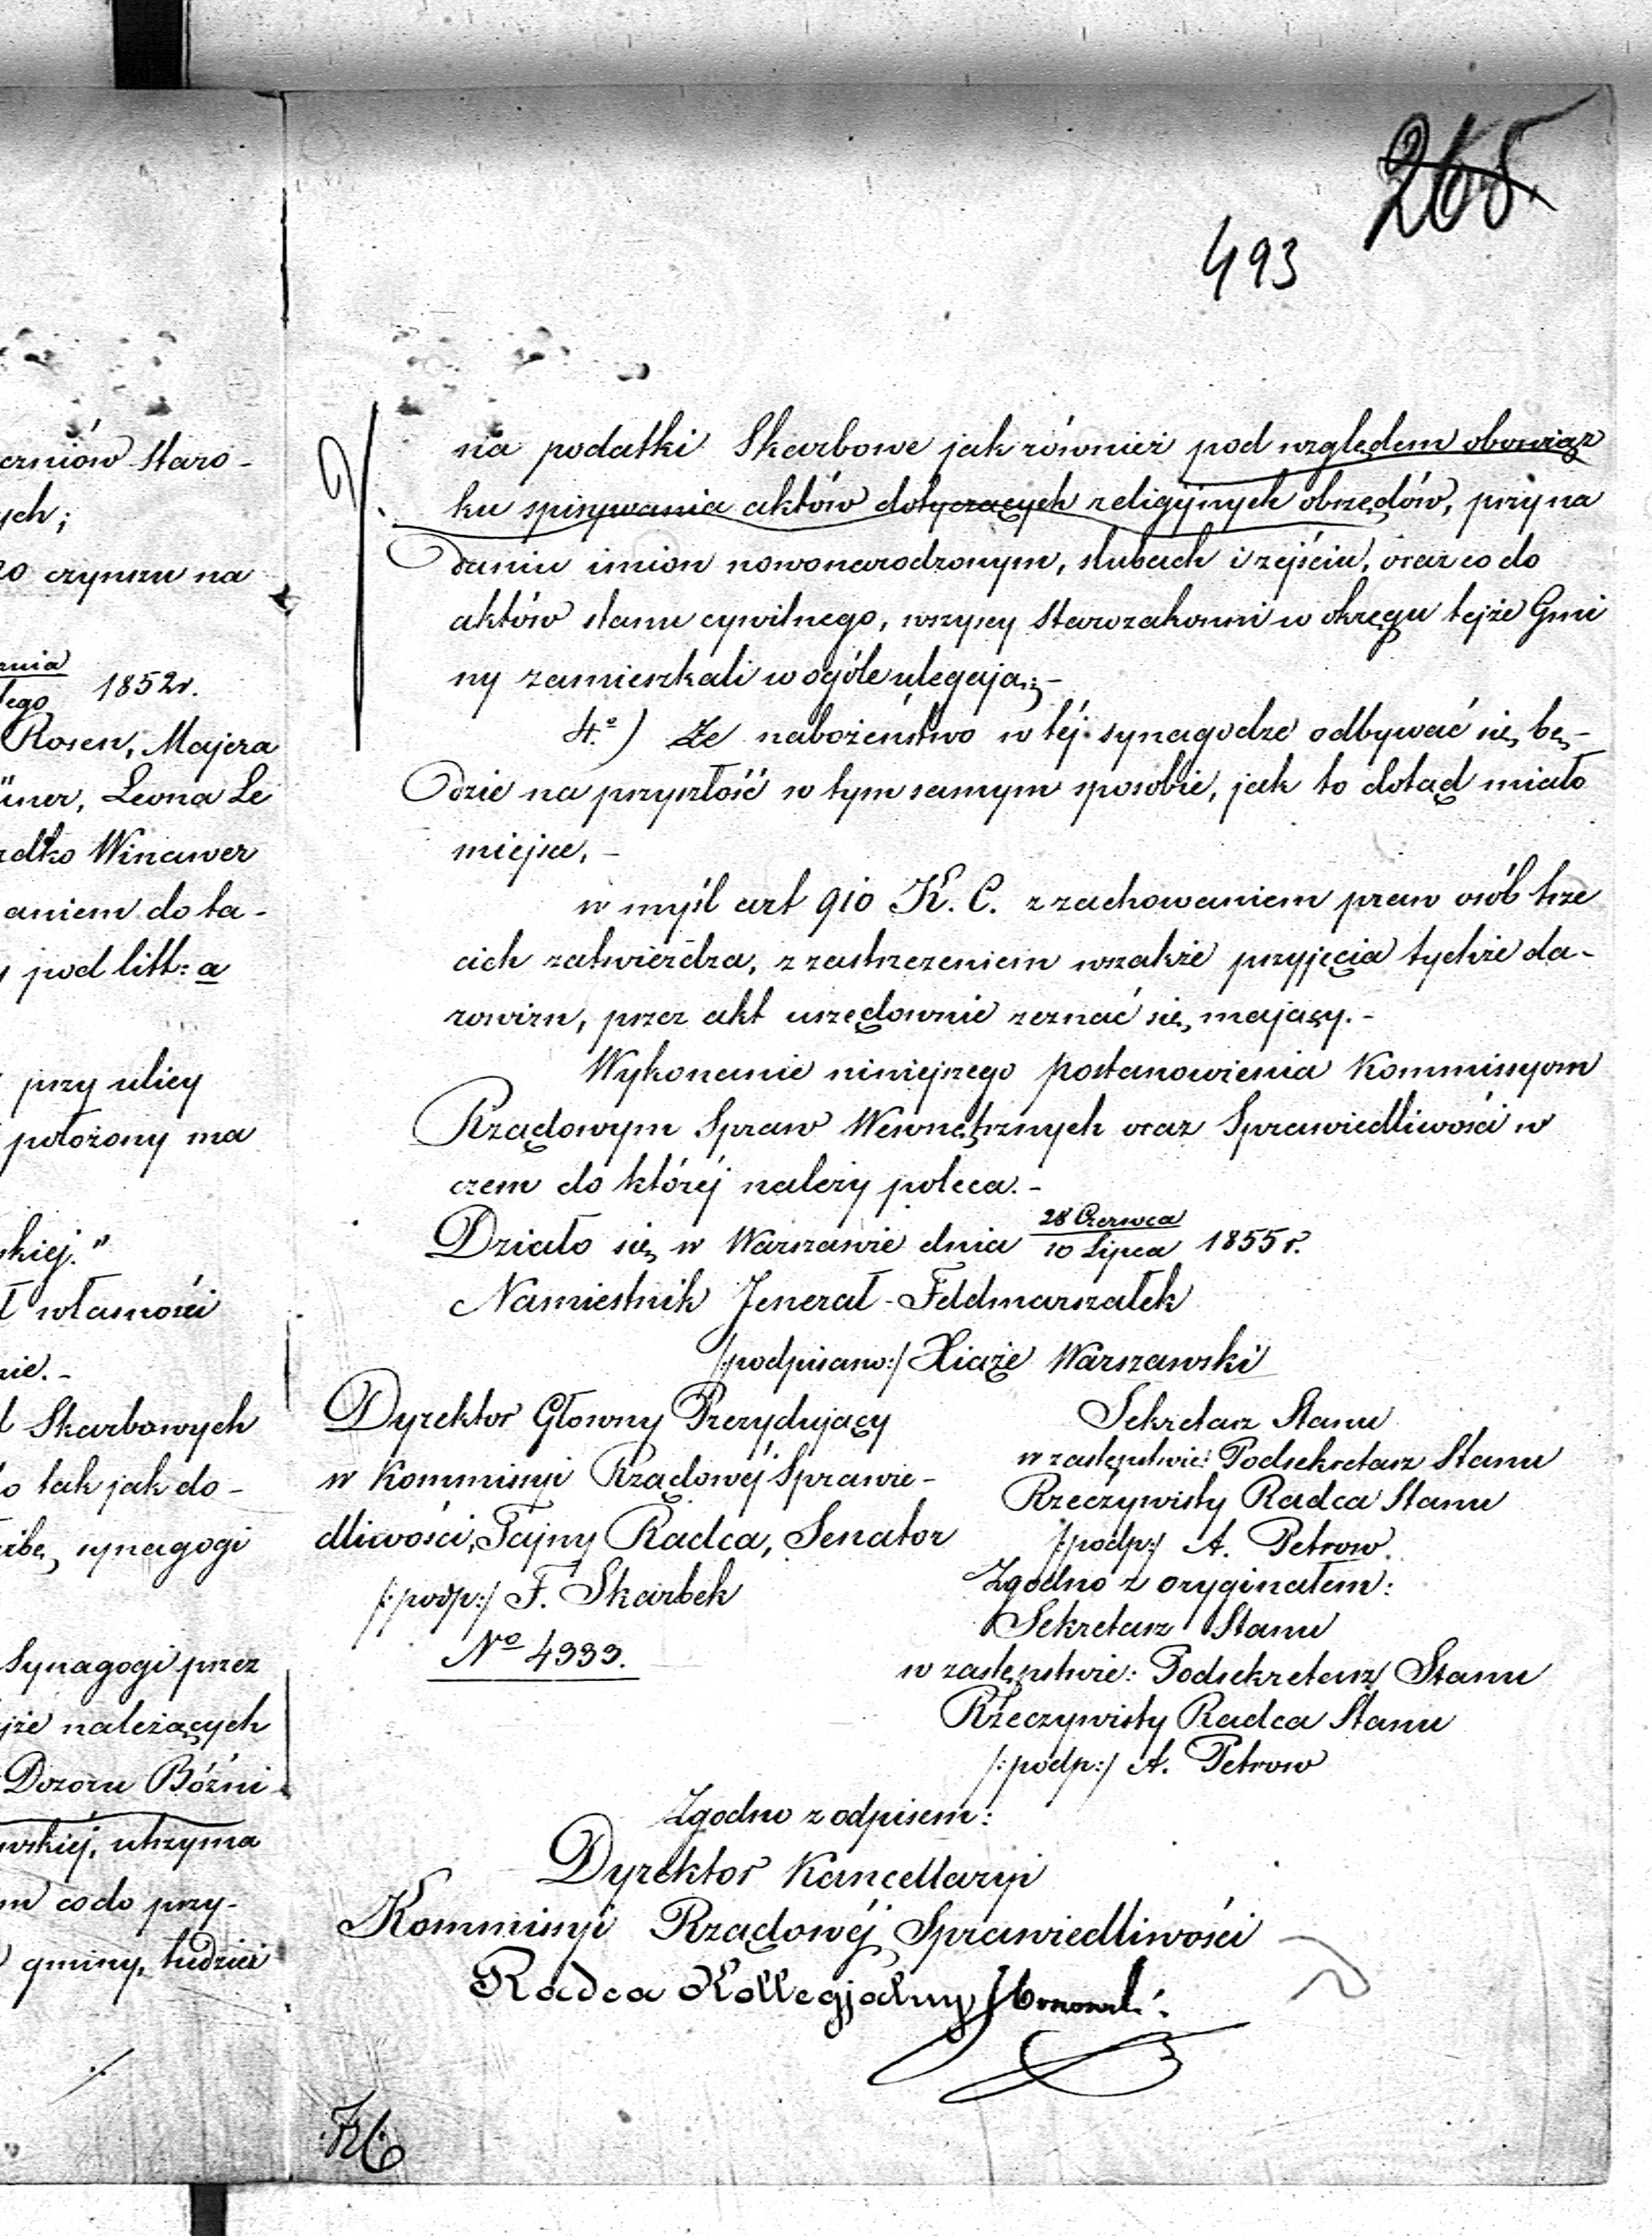 265.
493
na podatki Skarbowe jak również pod względem obowiąz
ku spisywania aktów dotyczących religijnych obrzędów, przy na
daniu imion nowonarodzonym, slubach i zejściu, oraz co do
aktów stanu cywilnego, wszyscy starozakonni w okręgu tejże Gmi
ny zamieszkali w ogóle ulegają;-
4.º) Ze nabożeństwo w téj synagodze odbywać się bę-
dzie na przyszłość w tym samym sposobie, jak to dotąd miało
miejsce.-
w myśl art 910 K. C. z zachowaniem praw osób trze
cich zatwierdza, z zastrzeżeniem wszakże przyjęcia tychże da-
rowizn, przez akt urzędownie zeznać się mający.-
Wykonanie niniejszego postanowienia Kommissyom
Rządowym Spraw Wewnętrznych oraz Sprawiedliwości w
czem do któréj należy poleca.-
Działo się w Warszawie dnia 28 Czerwca / 10 Lipca 1855 r.
Namiestnik Jenerał-Feldmarszałek
/podpisano:/ Xiąże Warszawski
Dyrektor Głowny Prezydujący
w Kommissyi Rządowéj Sprawie-
dliwości, Tajny Radca, Senator
/:podp:/ F. Skarbek
Nº 4333.
Sekretarz Stanu
w zastępstwie: Podsekretarz Stanu
Rzeczywisty Radca Stanu
/:podp:/ A. Petrow.
Zgodno z oryginałem:
Sekretarz Stanu
w zastępstwie: Podsekretarz Stanu
Rzeczywisty Radca Stanu
/:podp:/ A. Petrow
Zgodno z odpisem:
Dyrektor Kancellaryi
Kommissyi Rządowéj Sprawiedliwości
Radca Kollegjalny
erniów Staro-
ych;
czynszu na
1852r.
Rosen, Majera
Leona Le
Winawer
aniem do ta-
pod litt: a
przy ulicy
położony ma
skiej."
własności
nie.-
Skarbowych
tak jak do-
synagogi
Synagogi przez
jże należących
Dozoru Bóżni
wskiéj, utrzyma
co do przy-
gminy, tudzież